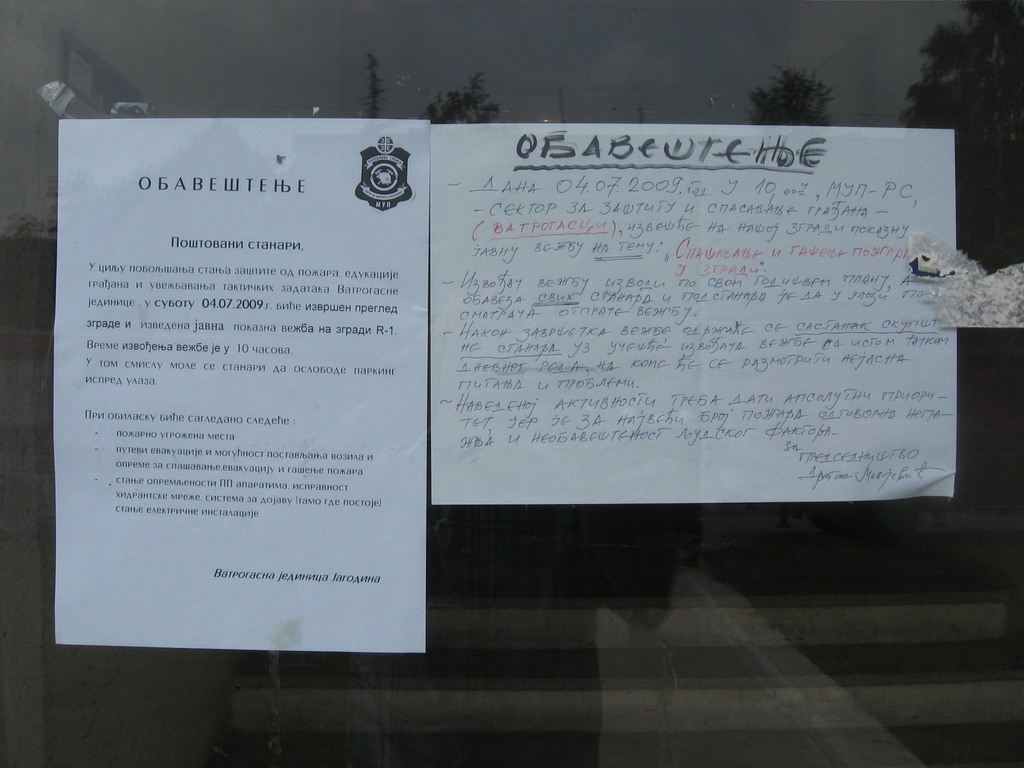 ОБАВЕШТЕЊЕ
МУП
Поштовани станари,
У циљу побољшања стања заштите од пожара, едукације
грађана и увежбавања тактичких задатака Ватрогасне
јединице , у суботу 04.07.2009 г. биће извршен преглед
зграде и изведена јавна показна вежба на згради R-1.
Време извођења вежбе је у 10 часова.
У том смислу моле се станари да ослободе паркинг
испред улаза.
При обиласку биће сагледано следеће :
- пожарно угрожена места
- путеви евакуације и могућност постављања возила и
опреме за спашавање,евакуацију и гашење пожара
- стање опремљености ПП апаратима, исправност
хидрантске мреже, система за дојаву (тамо где постоје)
стање електричне инсталације
Ватрогасна јединица Јагодина
ОБАВЕШТЕЊЕ
~ ДАНА 04.07.2009. год У 10,00 Ч, МУП-РС,
- СЕКТОР ЗА ЗАШТИТУ И СПАСАВАЊЕ ГРАЂАНА -
(ВАТРОГАСЦИ), ИЗВЕШЋЕ НА НАШОЈ ЗГРАДИ ПОКАЗНУ
ЈАВНУ ВЕЖБУ НА ТЕМУ: „СПАШАВАЊЕ И ГАШЕЊЕ ПОЖАРА
У ЗГРАДИ".
~ ИЗВОЂАЧ ВЕЖБУ ИЗВОДИ ПО СВОМ ГОДИШЊЕМ ПЛАНУ, А
ОБАВЕЗА СВИХ СТАНАРА И ПОДСТАНАРА ЈЕ ДА У УЛОЗИ ПО-
СМАТРАЧА ОТПРАТЕ ВЕЖБУ.
~ НАКОН ЗАВРШЕТКА ВЕЖБЕ ОДРЖАЋЕ СЕ САСТАНАК СКУПШТИ-
НЕ СТАНАРА УЗ УЧЕШЋЕ ИЗВОЂАЧА ВЕЖБЕ СА ИСТОМ ТАЧКОМ
ДНЕВНОГ РЕДА, НА КОМЕ ЋЕ СЕ РАЗМОТРИТИ НЕЈАСНА
ПИТАЊА И ПРОБЛЕМИ.
~ НАВЕДЕНОЈ АКТИВНОСТИ ТРЕБА ДАТИ АПСОЛУТНИ ПРИОРИ-
ТЕТ, ЈЕР ЈЕ ЗА НАЈВЕЋИ БРОЈ ПОЖАРА ОДГОВОРНА НЕПА-
ЖЊА И НЕОБАВЕШТЕНОСТ ЉУДСКОГ ФАКТОРА.
ЗА
ПРЕДСЕДНИШТВО